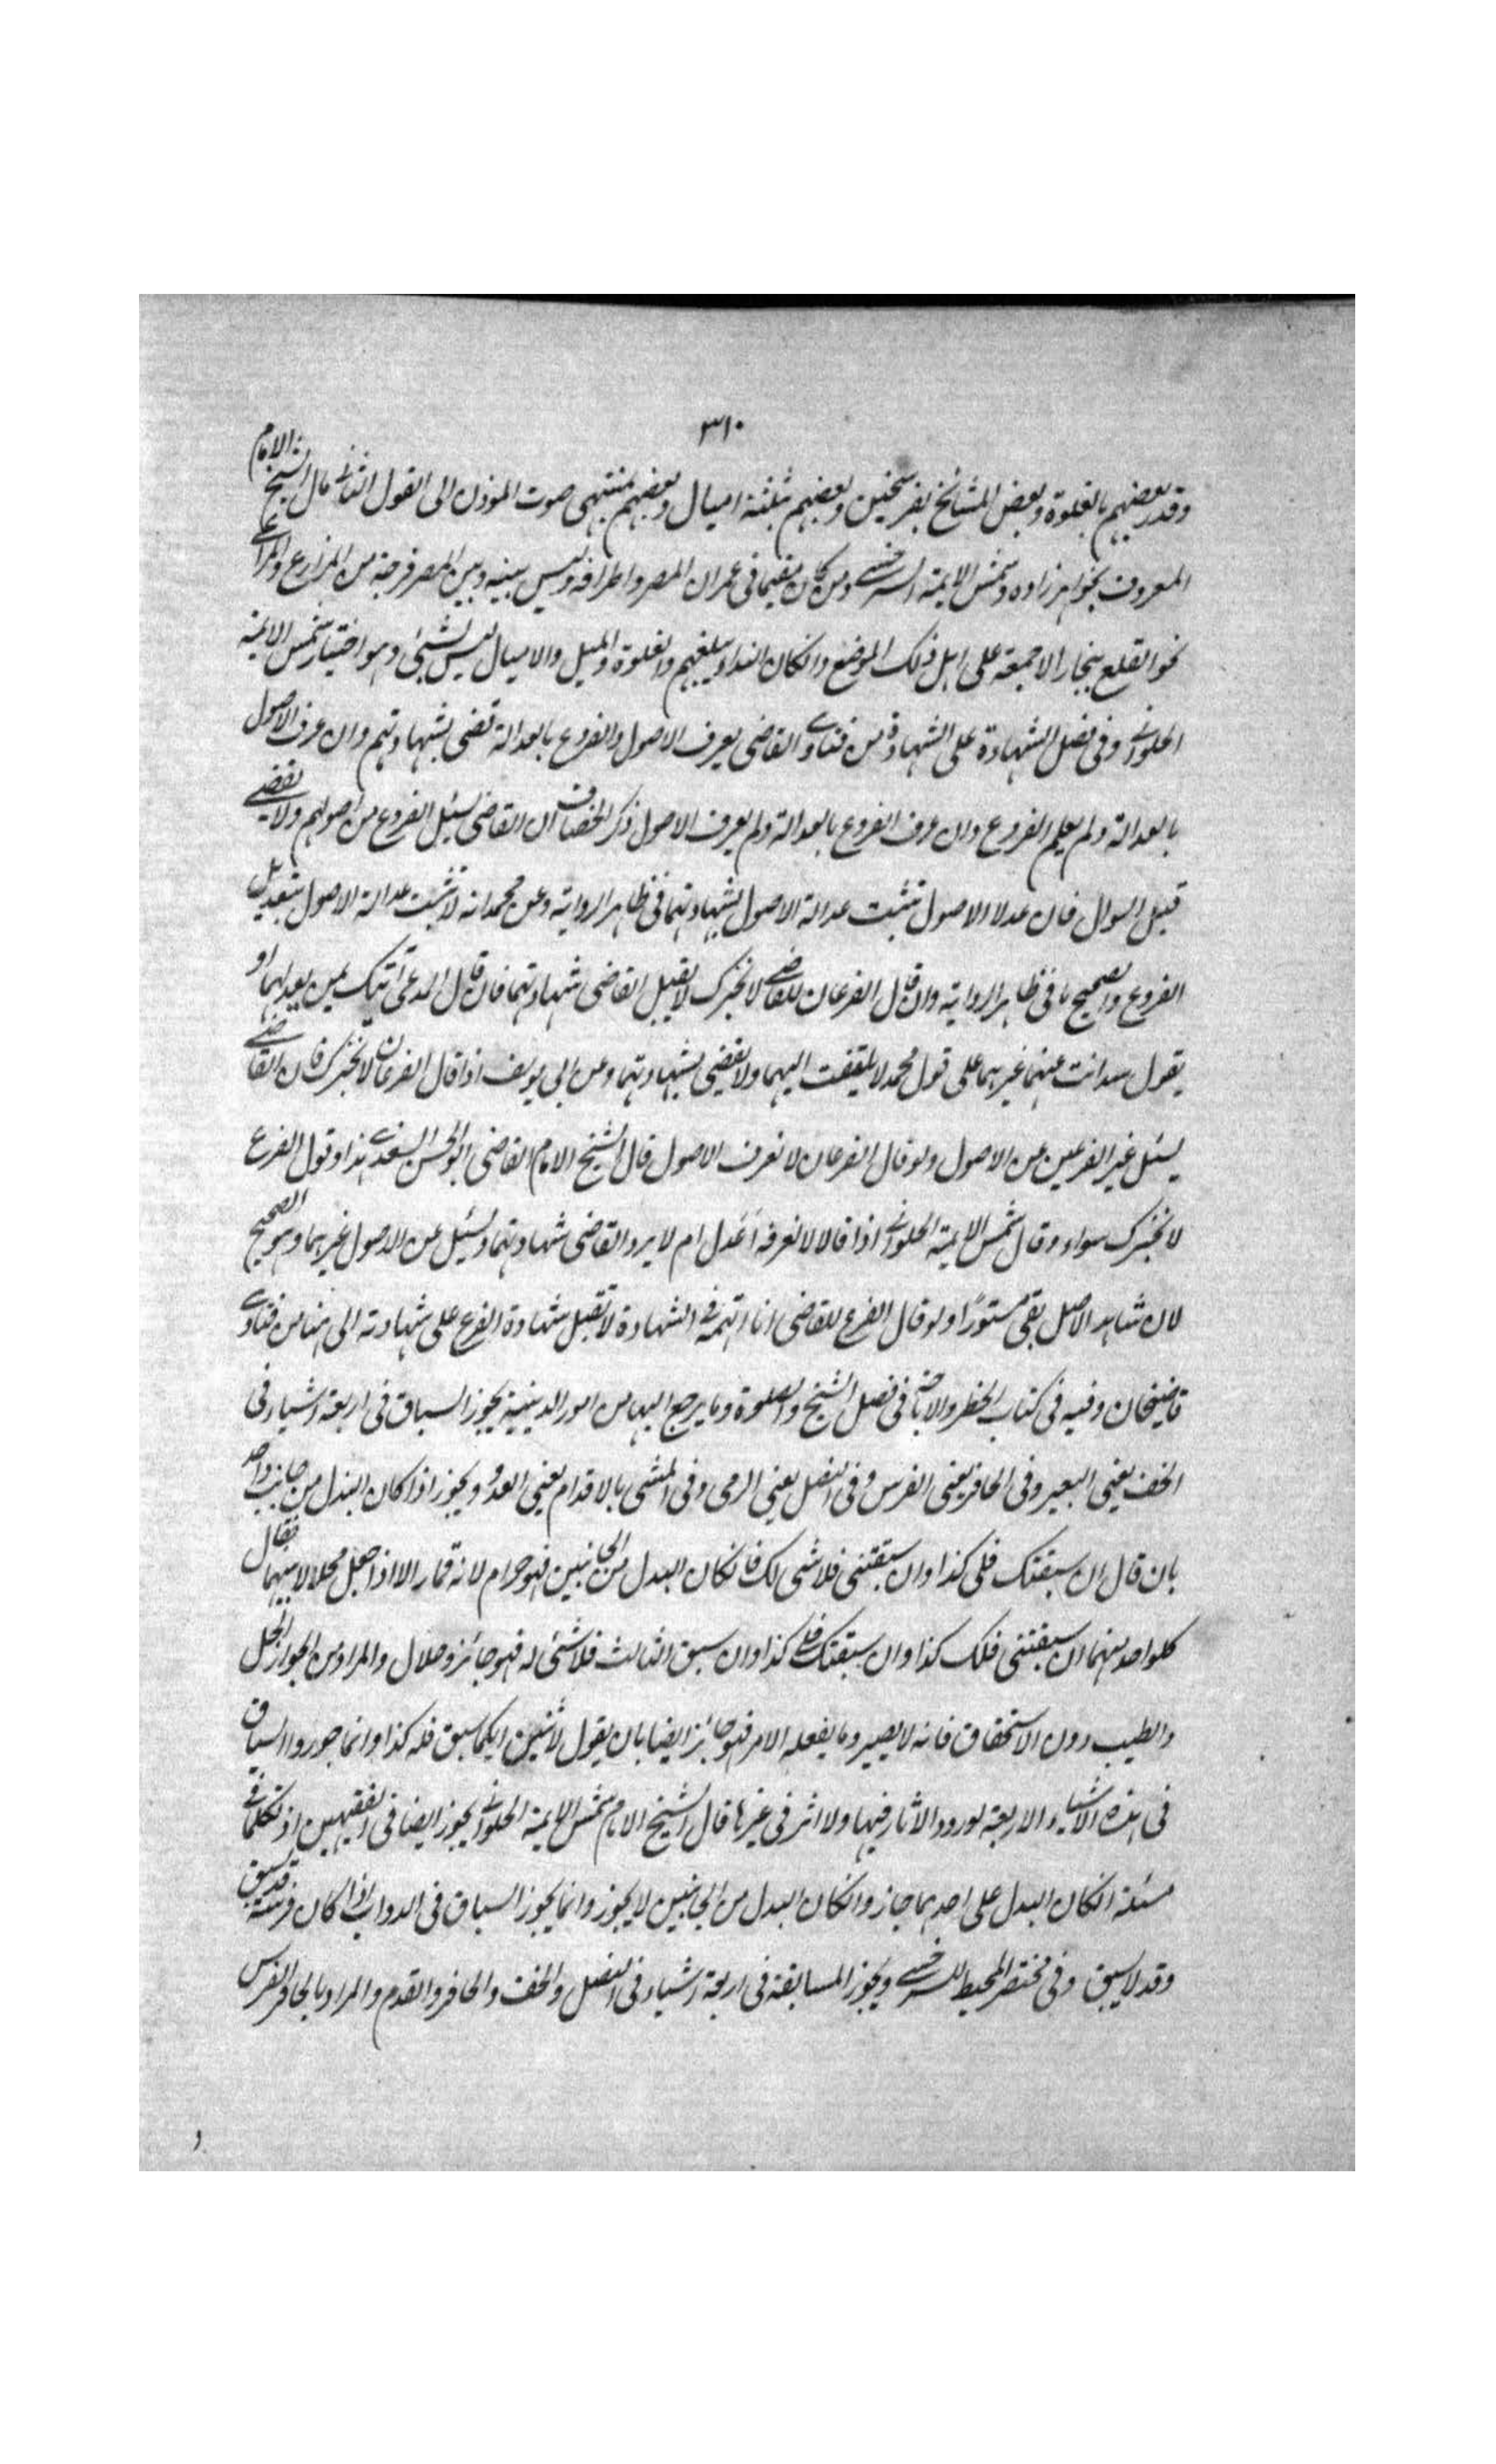 ٣١٠
وقدر بعضهم بالغلوة وبعض المشائخ بفرسخين وبعضهم بثلثة اميال وبعضهم منتهى صوت الموذن الى القول الثانى مال الشيخ الامام
المعروف بخواهرزاده وشمس الايمة السرخسى ومن كان مقيما فى عمران المصر واطرافه وليس بينه وبين المصر فرجة من المزارع والمراعى
نحو القلع ببخارا لا جمعة على اهل ذلك الموضع وان كان النداء يبلغهم والغلوة والميل والاميال ليس بشيئ وهو اختيار شمس الايمة
الحلوانى وفى فصل الشهادة على الشهادة من فتاوى القاضى يعرف الاصول والفروع بالعدالة قضى بشهادتهم وان عرف الاصول
بالعدالة ولم يعلم الفروع وان عرف الفروع بالعدالة ولم يعرف الاصول ذكر الخصاف ان القاضى يسئل الفروع من اصولهم ولا يقضى
قبل السوال فان عدلا الاصول تثبت عدالة الاصول بشهادتهما فى ظاهر الرواية وعن محمد انه لا تثبت عدالة الاصول بتعديل
الفروع والصحيح ما فى ظاهر الرواية وان قال الفرعان للقاضى لا نخبرك لا يقبل القاضى شهادتهما فان قال المدعى آتيك بمن يعدلهما او
يقول سل انت عنهما غيرهما على قول محمد لا يلتفت اليهما ولا يقضى بشهادتهما وعن ابى يوسف اذا قال الفرعان لا نخبرك فان القاضى
يسئل غير الفرعين عن الاصول ولو قال الفرعان لا نعرف الاصول قال الشيخ الامام القاضى ابو الحسن السغدى هذا وقول الفرع
لا نخبرك سواء وقال شمس الايمة الحلوانى اذا قالا لا نعرفه أعدل ام لا يرد القاضى شهادتهما ويسئل عن الاصول غيرهما وهو الصحيح
لان شاهد الاصل بقى مستورًا ولو قال الفرع للقاضى انا اتهمه فى الشهادة لا تقبل شهادة الفرع على شهادته الى هنا من فتاوى
قاضيخان وفيه فى كتاب الحظر والاباحة فى فصل الشيخ والصلوة وما يرجع اليها من امور الدينية يجوز السباق فى اربعة اشياء فى
الخف يعنى البعير وفى الحافر يعنى الفرس وفى النصل يعنى الرمى وفى المشى بالاقدام يعنى العدو ويجوز اذا كان البدل من جانب واحد
بان قال ان سبقتك فلى كذا وان سبقتنى فلا شى لك فانكان البدل من الجانبين فهو حرام لانه قمار الا اذا جعل محللا بينهما فقال
كلواحد منهما ان سبقتنى فلك كذا وان سبقتك فلى كذا وان سبق الثالث فلا شئى له فهو جائز وحلال والمراد من الجواز الحل
والطيب دون الاستحقاق فانه لا يصير وما يفعله الامر فهو جائز ايضا بان يقول لاثنين ايكما سبق فله كذا وانما جوزوا السباق
فى هذه الاشياء الاربعة لورود الاثار فيها ولا اثر فى غيرها قال الشيخ الامام شمس الايمة الحلوانى يجوز ايضا فى الفقيهين اذ تكلما فى
مسئلة انكان البدل على احدهما جاز وانكان البدل من الجانبين لا يجوز وانما يجوز السباق فى الدواب اذا كان فرسه قد يسبق
وقد لا يسبق وفى مختصر المحيط للسرخسى ويجوز المسابقة فى اربعة اشياء فى النصل والخف والحافر والقدم والمراد بالحافر الفرس
و